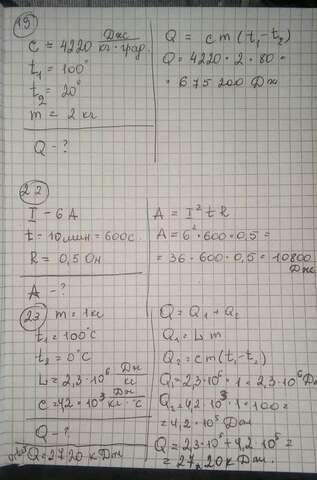 19
c = 4220 Дж/кг·град.
t₁ = 100°
t₂ = 20°
m = 2 кг
Q - ?
Q = cm(t₁-t₂)
Q = 4220 · 2 · 80 =
= 675 200 Дж
22
I - 6 А
t - 10 мин = 600с.
R = 0,5 Ом
A - ?
A = I² t R
A = 6² · 600 · 0,5 =
= 36 · 600 · 0,5 = 10800 Дж
23 m = 1 кг
t₁ = 100°C
t₂ = 0°C
L = 2,3·10⁶ Дж/кг
c = 4,2 · 10³ Дж/кг·°C
Q - ?
Q = 2720 кДж
Q = Q₁ + Q₂
Q₁ = L m
Q₂ = cm(t₁-t₂)
Q₁ = 2,3·10⁶ · 1 = 2,3·10⁶ Дж
Q₂ = 4,2 · 10³ · 1 · 100 =
= 4,2 · 10⁵ Дж
Q = 2,3·10⁶ + 4,2·10⁵ =
= 27,20 кДж.